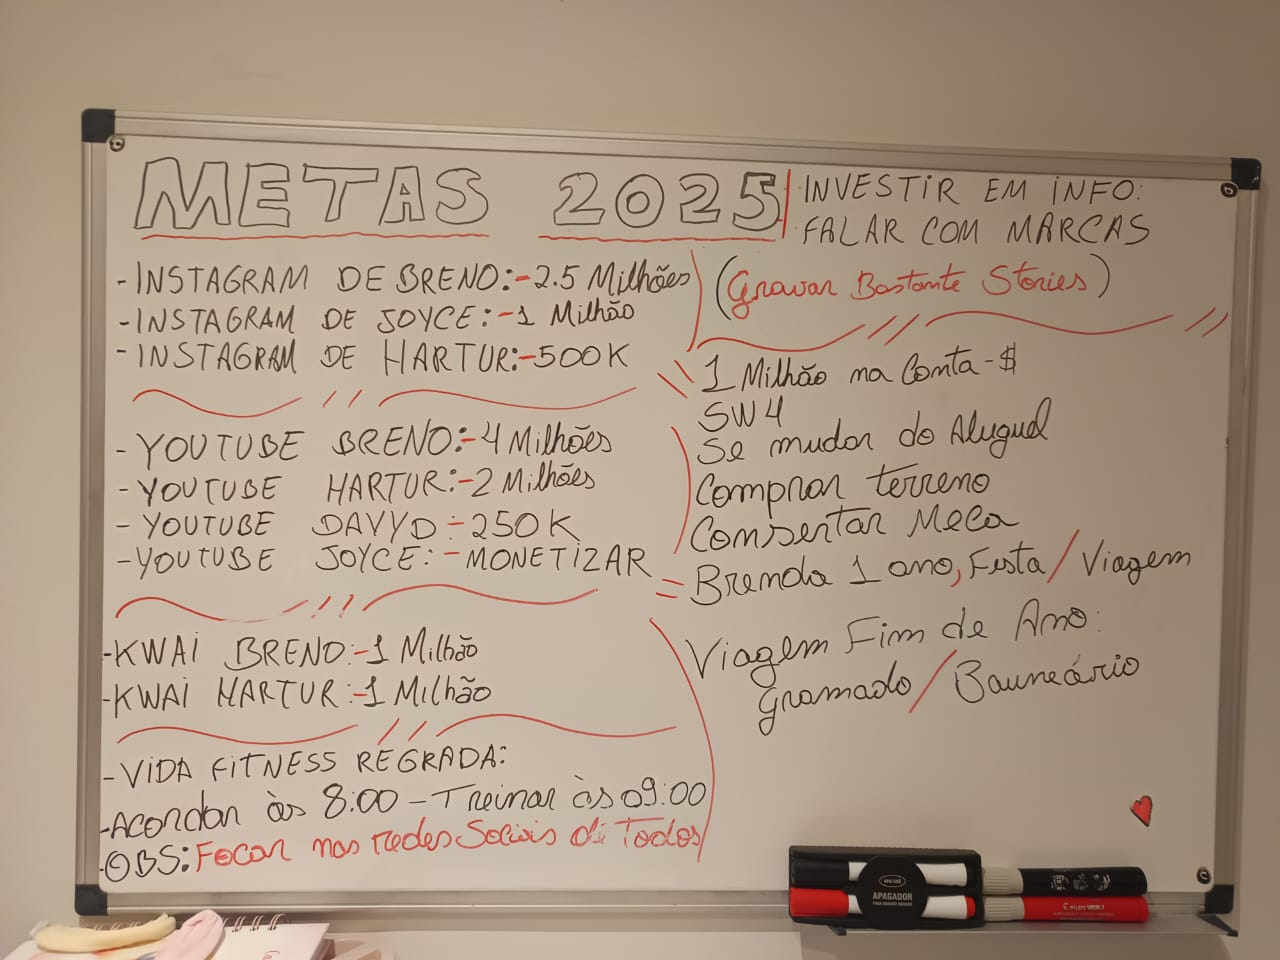 METAS 2025
- INSTAGRAM DE BRENO:-2.5 Milhões
- INSTAGRAM DE JOYCE:-1 Milhão
- INSTAGRAM DE HARTUR:-500K
- YOUTUBE BRENO:-4 Milhões
- YOUTUBE HARTUR:-2 Milhões
- YOUTUBE DAVYD-250K
- YOUTUBE JOYCE:-MONETIZAR
- KWAI BRENO:-1 Milhão
- KWAI HARTUR:-1 Milhão
- VIDA FITNESS REGRADA:
- Acordar às 8:00 - Treinar às 09:00
- OBS: Focar nas redes Sociais di Todos
INVESTIR EM INFO:
FALAR COM MARCAS
(Gravar Bastante Stories)
1 Milhão na Conta-$
SW4
Se mudar do Aluguel
Comprar terreno
Consertar Meca
= Brenda 1 ano, Festa / Viagem
Viagem Fim de Ano:
Gramado / Bauneário
APAGADOR
PARA QUADRO BRANCO
PILOT WBM-7